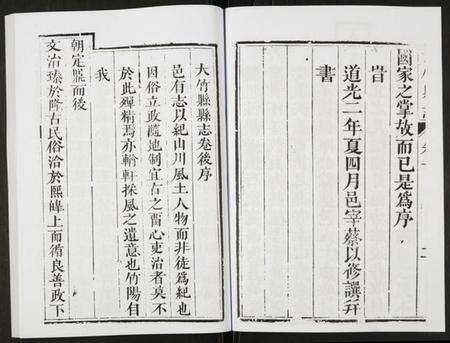 國家之掌故而已是爲序
旹
道光二年夏四月邑宰蔡以修譔并
書
大竹縣縣志卷後序
邑有志以紀山川風土人物而非徒爲紀也
因俗立政隨地制宜古之留心吏治者莫不
於此殫精焉亦輶軒採風之遺意也竹陽自
我
朝定鼎而後
文治臻於隆古民俗洽於熙皞上而循良善政下